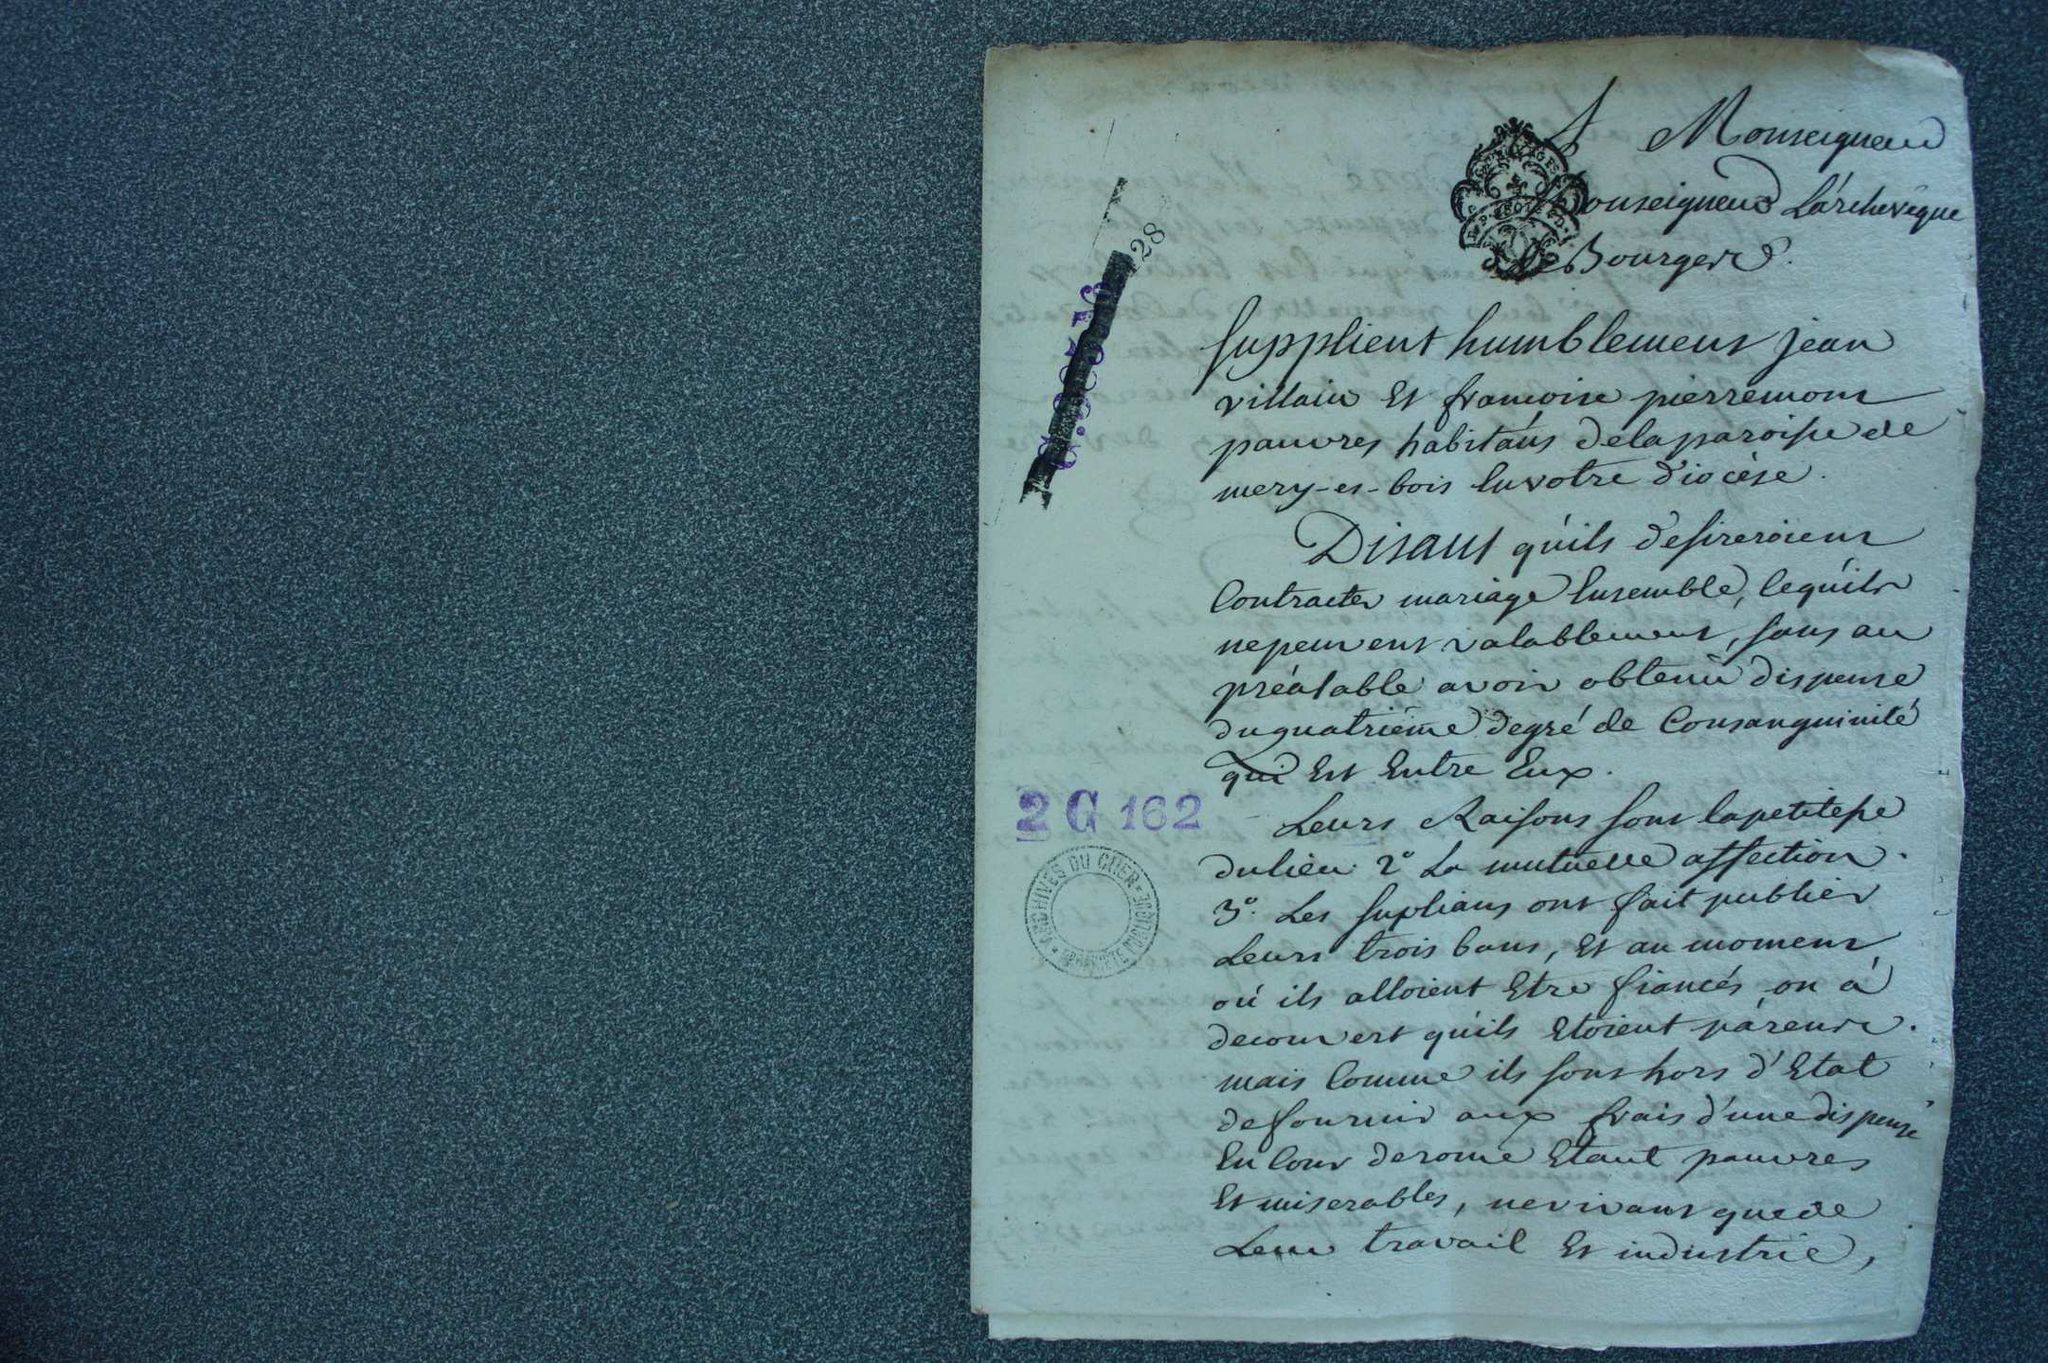 A Monseigneur
Monseigneur L'archevêque
de Bourges.
28
Supplient humblement jean
villain Et francoise pierremont
pauvres habitáns delaparoisse de
mery-es-bois En votre diocèse.
Disant qu'ils desireroient
Contracter mariage Ensemble, Cequ'ils
nepeuvent valablement, sans au
préalable avoir obtenu dispense
du quatriéme degré de Consanguinité
qui Est Entre Eux.
2 G 162
Leurs Raisons sont lapetitesse
dulieu. 2° La mutuelle affection.
3°. Les suplians ont fait publier
Leurs trois bans, Et au moment
où ils alloient Etre fiancés, on á
decouvert qu'ils Etoient párents.
mais Comme ils sont hors d'Etat
defournir aux frais d'une dispense
En Cour derome Etant pauvres
Et miserables, nevivant quede
Leur travail Et industrie,
ARCHIVES DU CHER
PROPRIÉTÉ PUBLIQUE